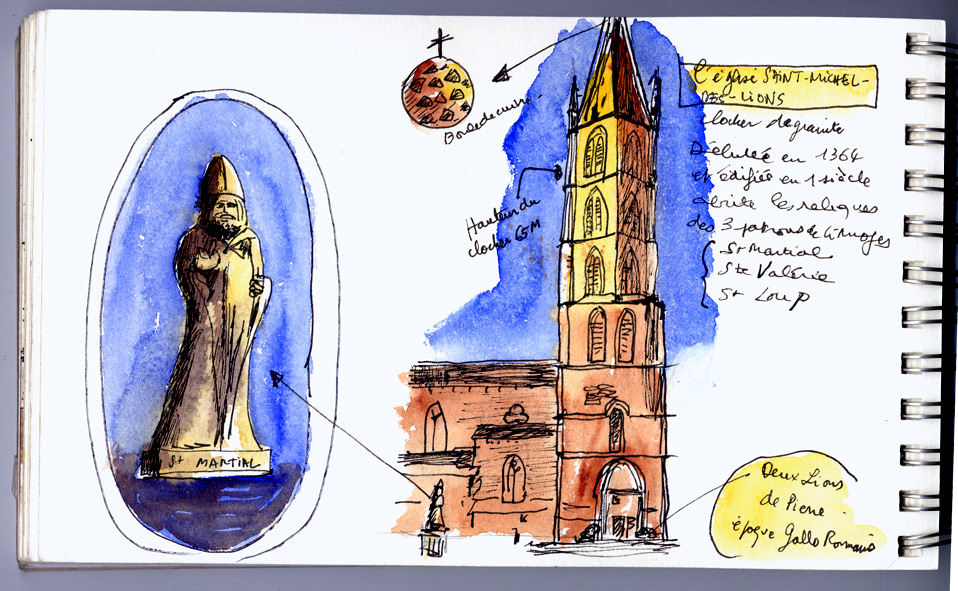 l'église SAINT-MICHEL-
DES-LIONS
clocher de granite
Débutée en 1364
et édifiée en 1 siècle
abrite les reliques
des 3 patrons de Limoges
St Martial
Ste Valérie
St Loup
Boule de cuivre.
Hauteur du
clocher 65M
St MARTIAL
Deux Lions
de Pierre.
époque Gallo Romaine